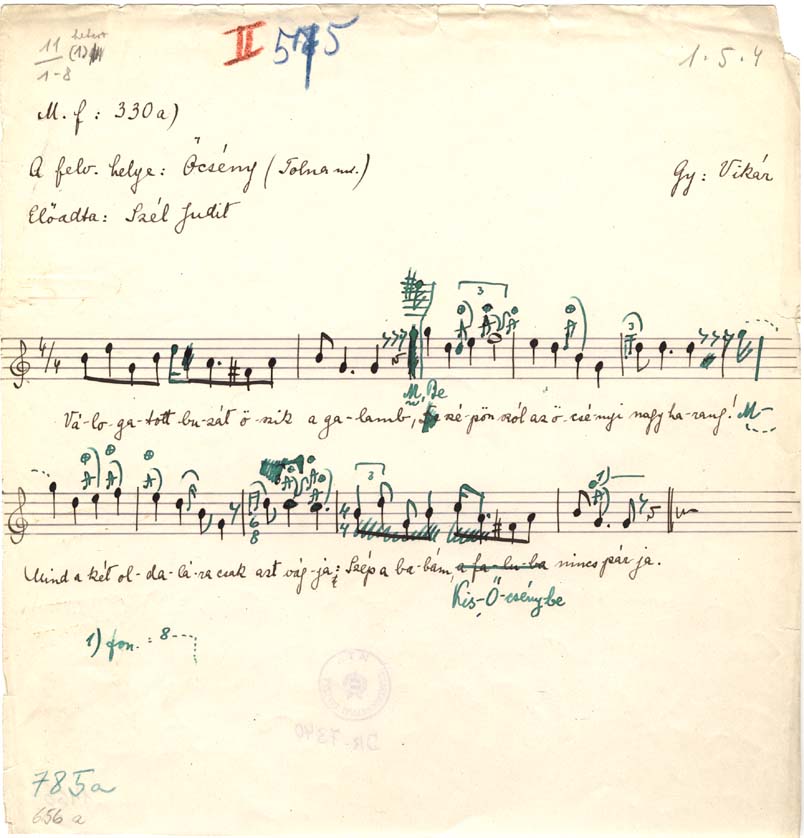 11 (1)
1-8
II 575
1·5·4
M. f: 330a)
A felv. helye: Őcsény (Tolna m.)
Gy: Vikár
Előadta: Szél Judit
3
3
4/4
M, Be
Vá-lo-ga-tott bu-zát ö-szik a ga-lamb, szé-pön szól az ö-csé-nyi nagy ha-rang! M-
3
1)
6
8
4
4
Mind a két ol-da-lá-ra csak azt vág-ja: Szép a ba-bám, a fa-lu-ba nincs pár-ja.
Kis-Ő-csény-be
1) fon. : 8----
DR-7340
785a
656a